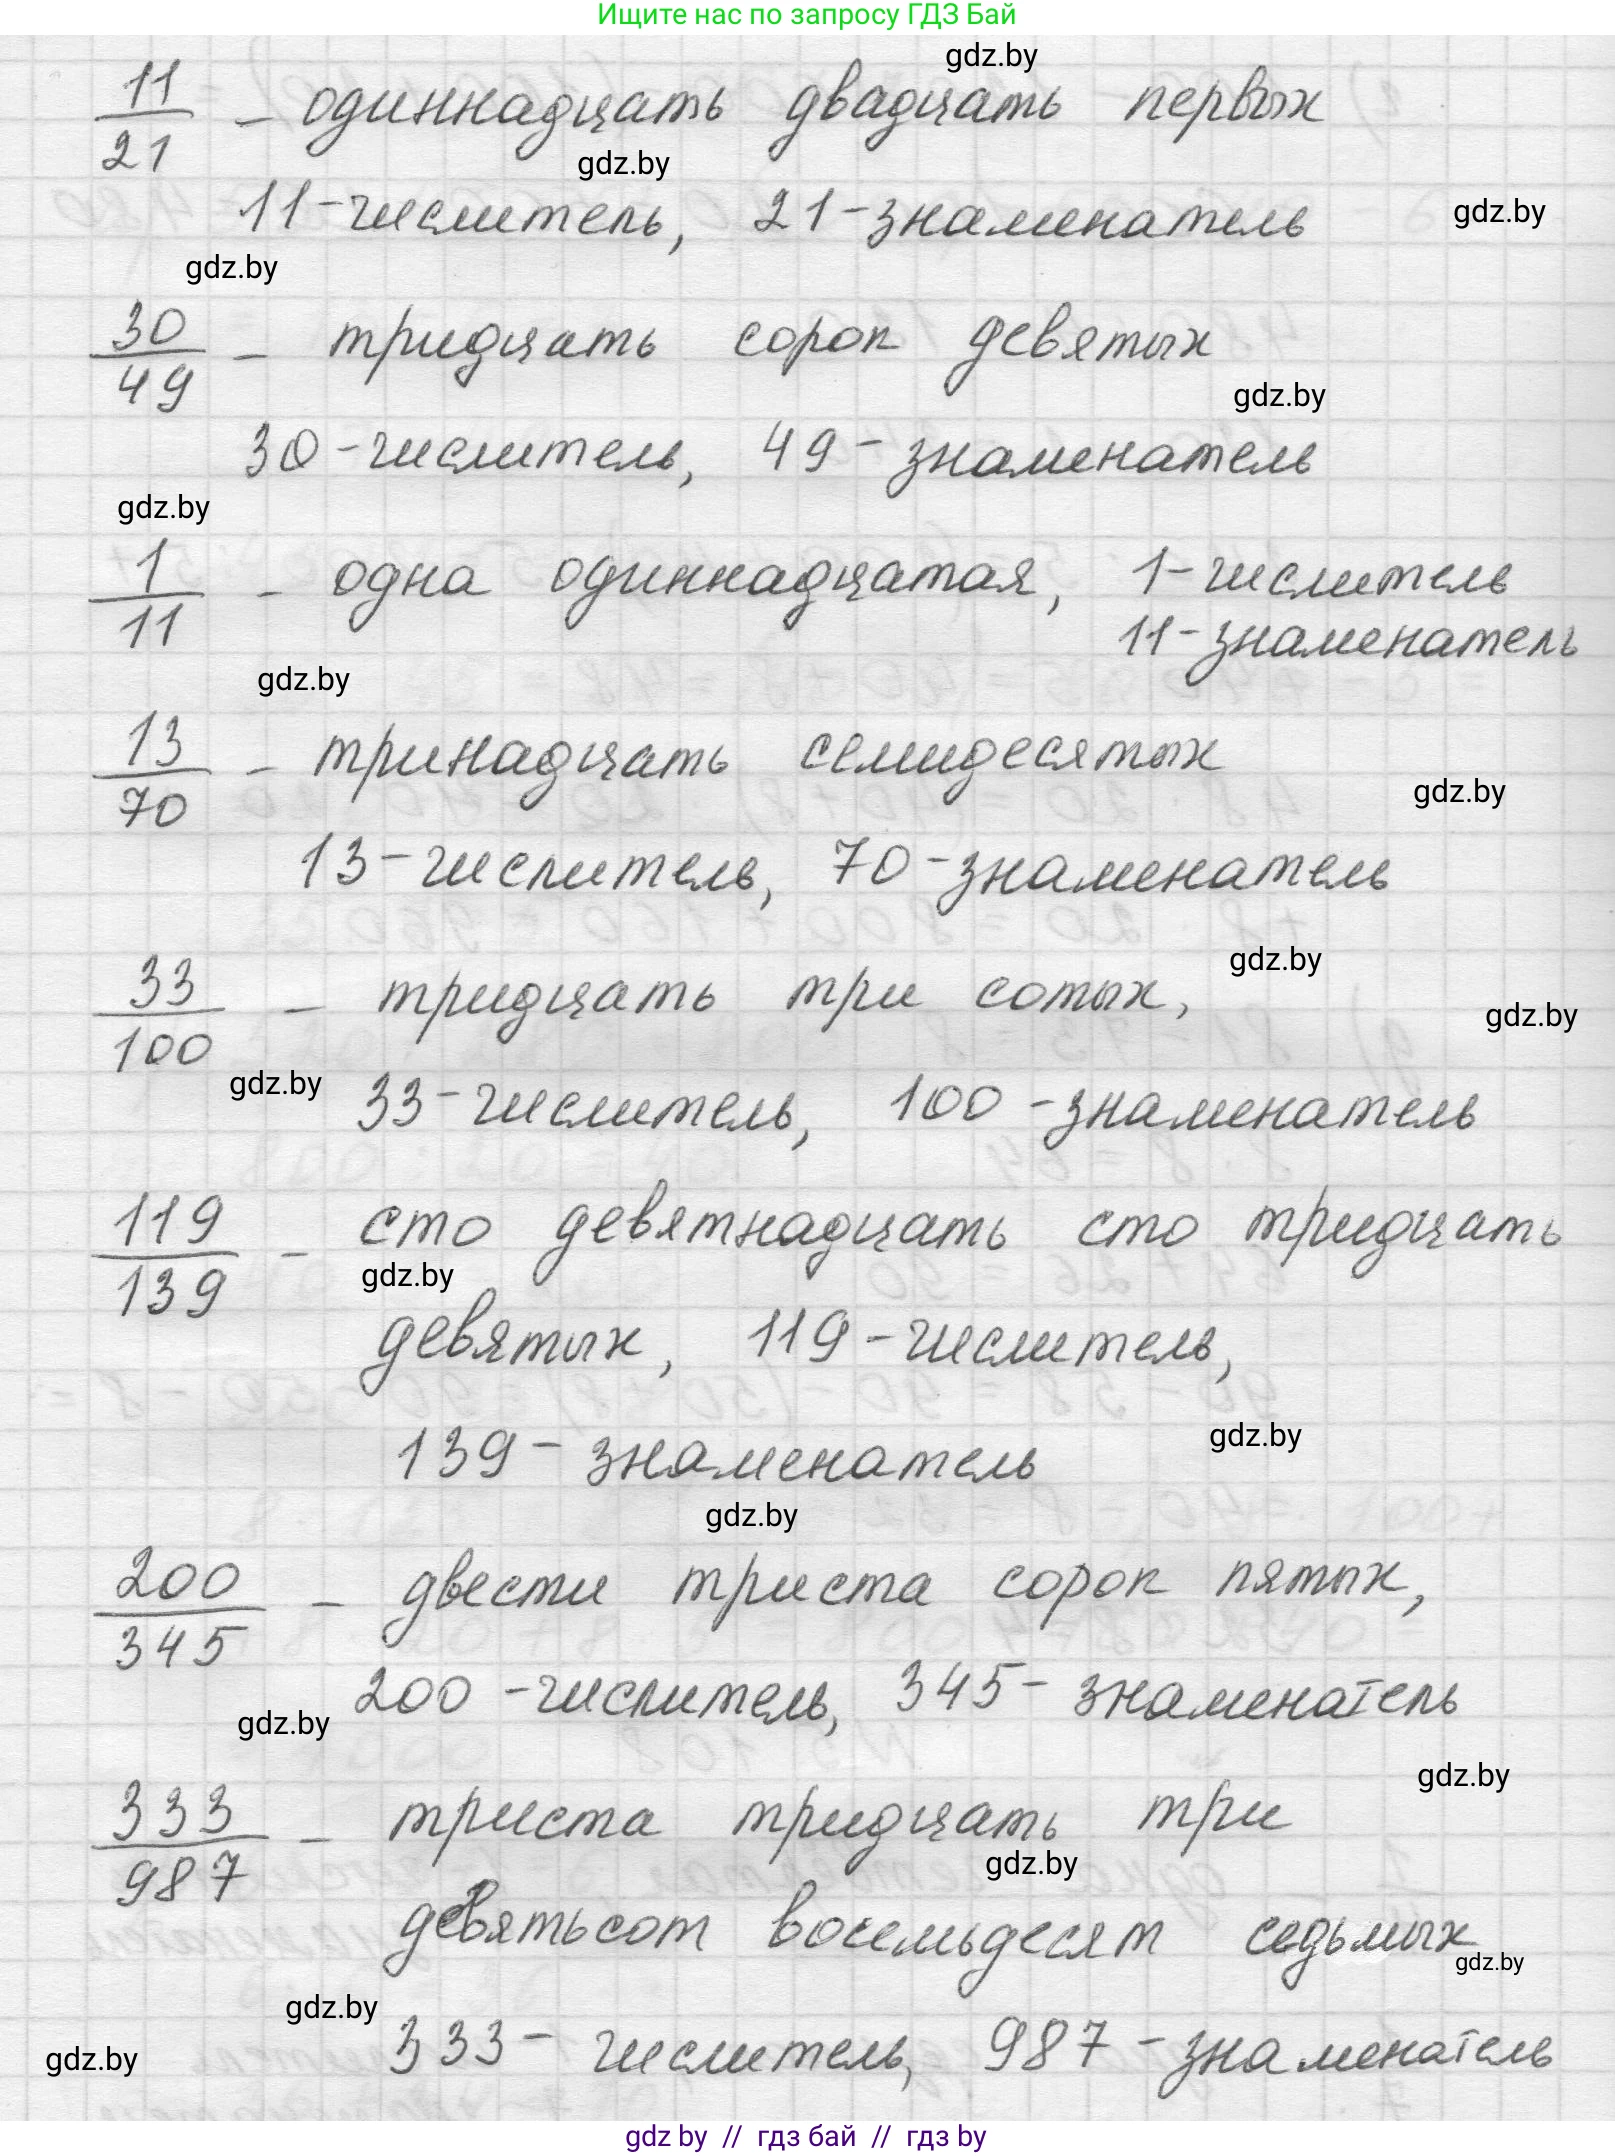 Ищите нас по запросу ГДЗ Бай
gdz.by
11/21 – одиннадцать двадцать первых
gdz.by
11-числитель, 21-знаменатель
gdz.by
gdz.by
30/49 – тридцать сорок девятых
gdz.by
30-числитель, 49-знаменатель
gdz.by
1/11 – одна одиннадцатая, 1-числитель
11-знаменатель
gdz.by
13/70 – тринадцать семидесятых
gdz.by
13-числитель, 70-знаменатель
gdz.by
33/100 – тридцать три сотых,
gdz.by
gdz.by
33-числитель, 100-знаменатель
119/139 – сто девятнадцать сто тридцать
gdz.by
девятых, 119-числитель,
gdz.by
139-знаменатель
gdz.by
200/345 – двести триста сорок пятых,
200-числитель, 345-знаменатель
gdz.by
gdz.by
333/987 – триста тридцать три
gdz.by
девятьсот восемьдесят седьмых
gdz.by
gdz.by
333-числитель, 987-знаменатель
gdz.by
gdz by // гдз бай // гдз by